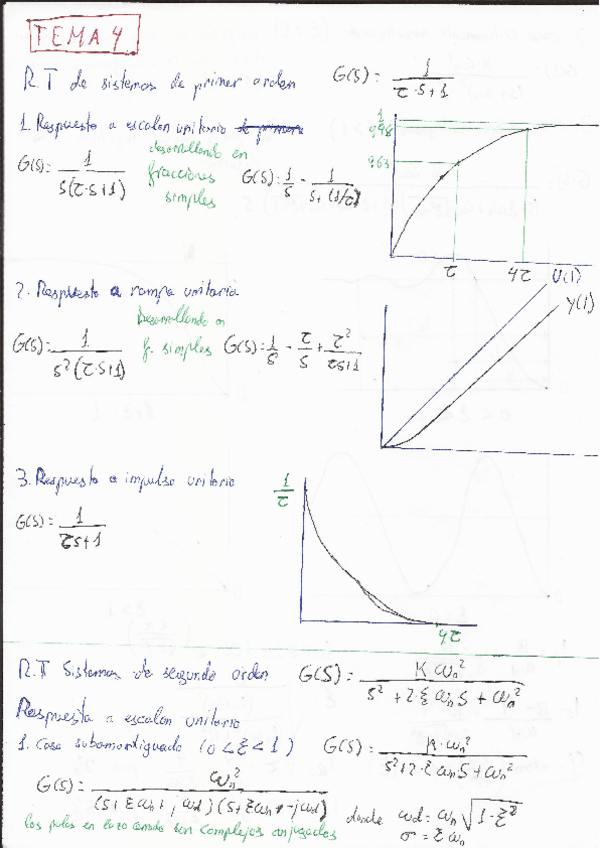 TEMA 4
R.T de sistemas de primer orden G(S) = 1 / (τ·S+1)
1. Respuesta a escalon unitario
G(S) = 1 / (S(τ·S+1)) desarrollando en fracciones simples G(S): 1/S - 1/(S+(1/τ))
1
0,98
0,63
τ 4τ
2. Respuesta a rampa unitaria
U(1)
Y(1)
G(S) = 1 / (S²(τ·S+1)) Desarrollando en f. simples G(S) = 1/S² - τ/S + τ²/(τS+1)
3. Respuesta a impulso unitario
1/τ
G(S) = 1 / (τS+1)
4τ
R.T Sistemas de segundo orden G(S) = K ωn² / (S² + 2·ξ ωn S + ωn²)
Respuesta a escalon unitario
1. Caso subamortiguado (0 < ξ < 1) G(S) = K·ωn² / (S²+2·ξ ωn S + ωn²)
G(S) = ωn² / ((S+ξωn + j ωd)(S+ξωn - jωd)) donde ωd = ωn √(1-ξ²)
σ = ξ ωn
los polos en lazo cerrado son complejos conjugados